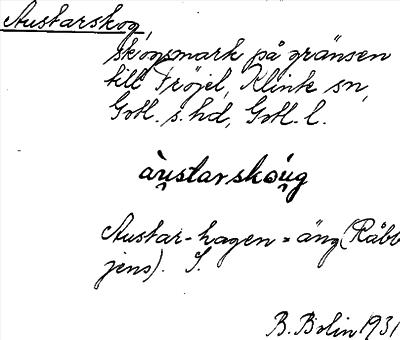 Austarskog,
skogsmark på gränsen
till Fröjel, Klinte sn,
Gotl. s. hd, Gotl. l.
àu̯starskóu̯g
Austar-hagen = äng (Råbb
jens). S.
B. Bolin 1931